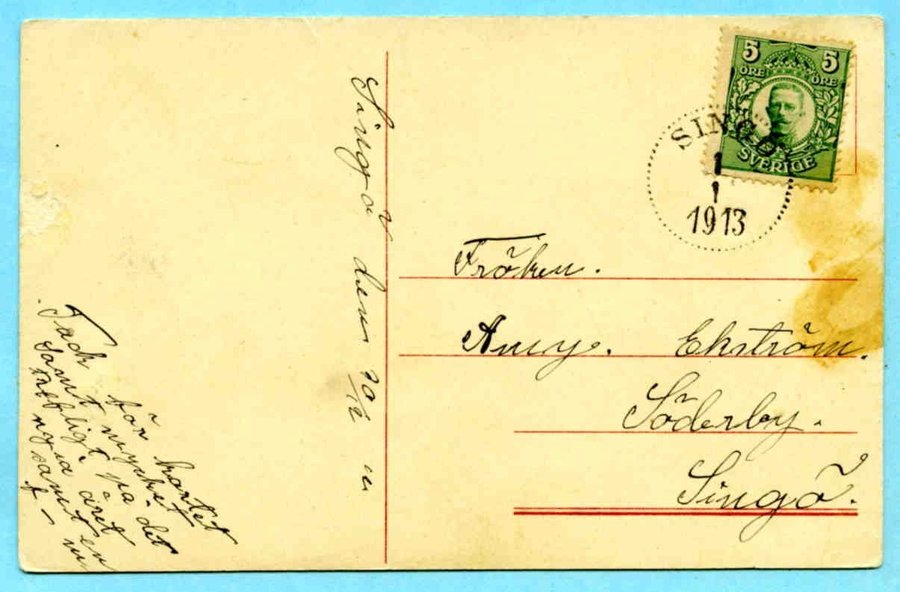 5 5
ÖRE ÖRE
SVERIGE
SINGÖ
1
1
1913
Singö den 30/12
Fröken.
Amy. Ekström.
Söderby.
Singö.
Tack för kortet
Samt mycket
på det
nya året
samt en